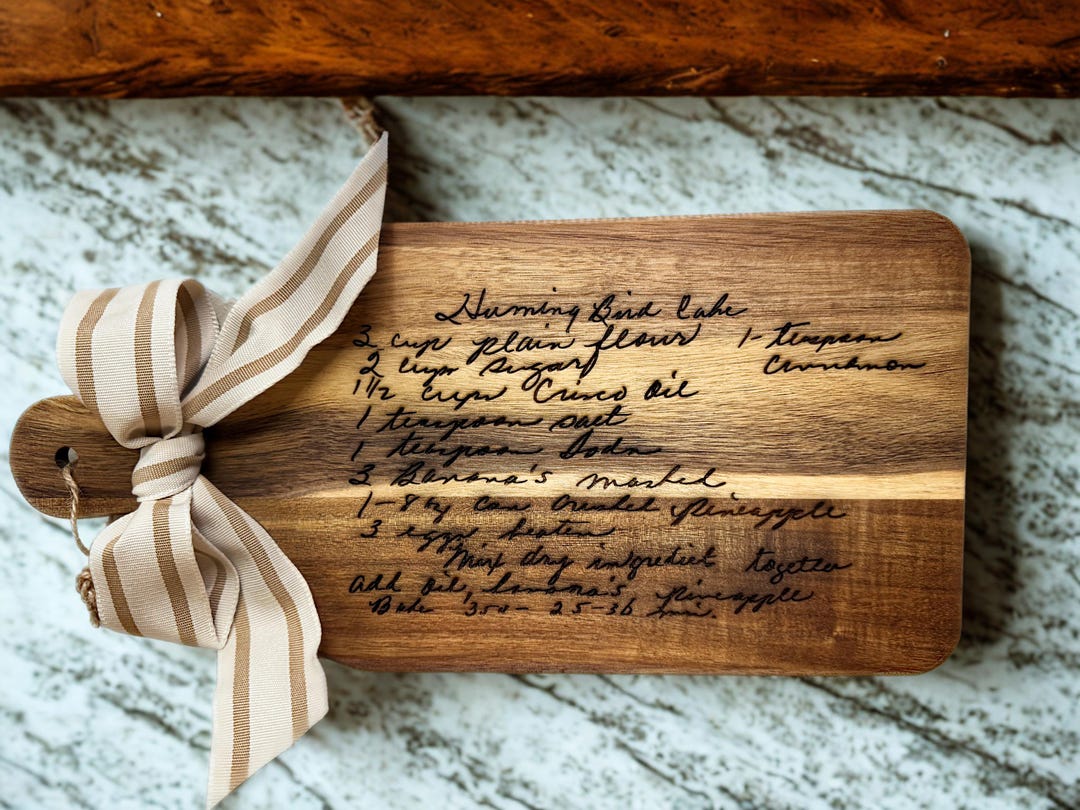 Huming Bird Cake
3 cup plain flour 1- teaspoon
2 cups sugar Cinnamon
1 1/2 cups Crisco Oil
1 teaspoon salt
1 teaspoon Soda
3 Banana's mashed
1-8 oz can crushed pineapple
3 eggs beaten
Mix dry ingrediet together
Add Oil, banana's, pineapple
Bake 350- 25-30 min.